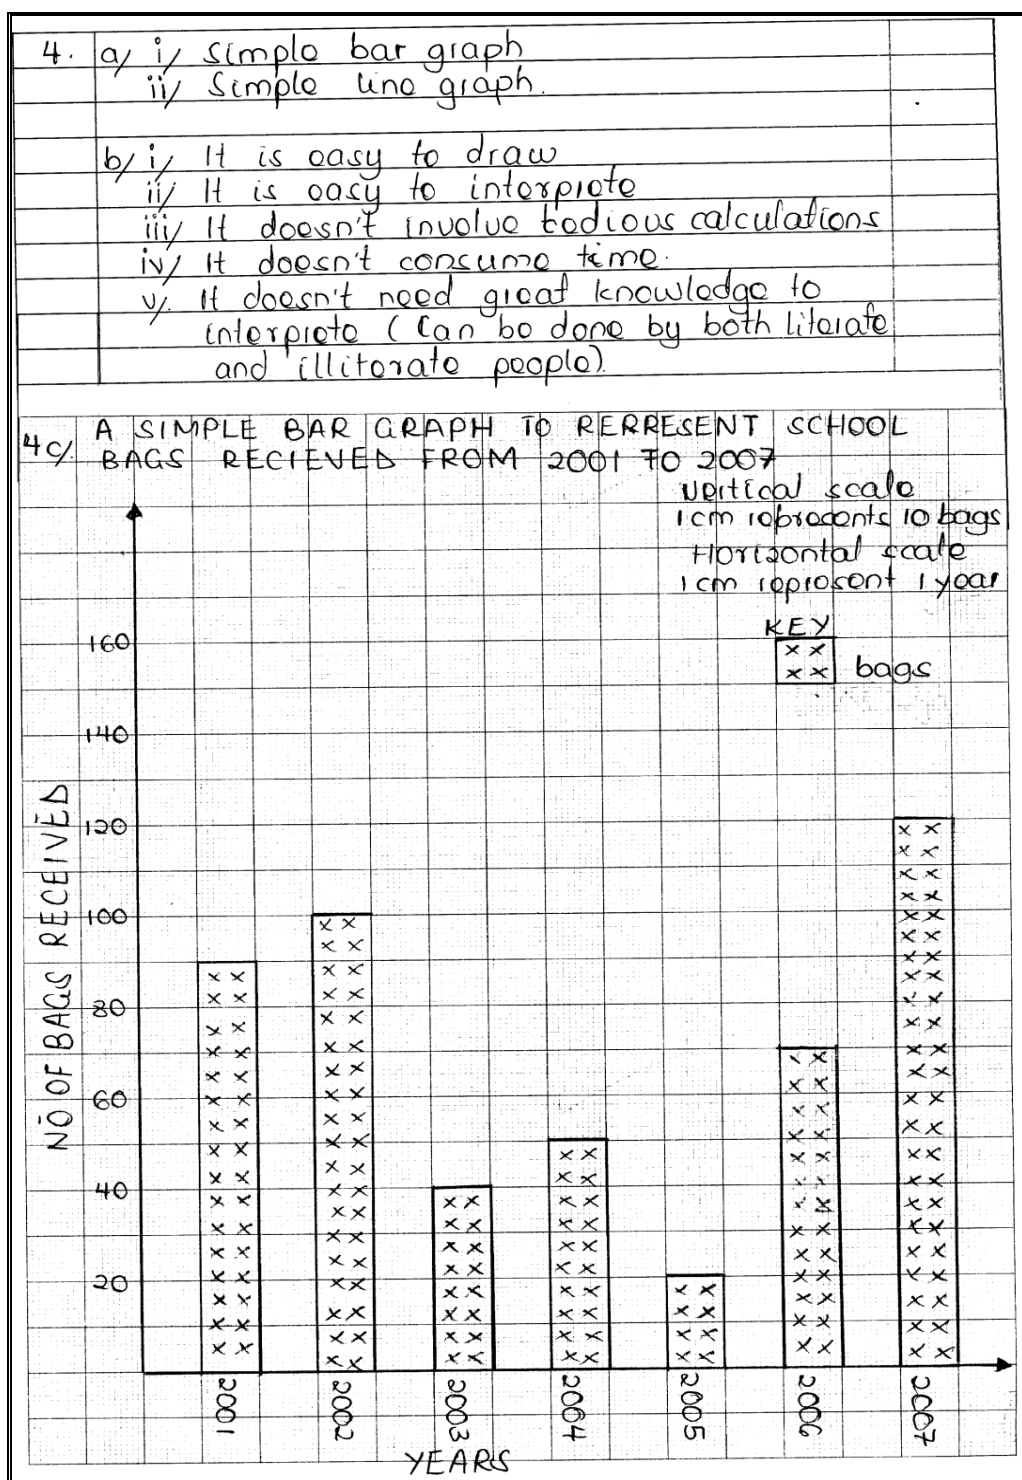 4. a/ i/ Simple bar graph
ii/ Simple line graph.
b/ i/ It is easy to draw
ii/ It is easy to interprete
iii/ It doesn't involve tedious calculations
iv/ It doesn't consume time.
v/. It doesn't need great knowledge to
interprete (Can be done by both literate
and illiterate people).
4c/. A SIMPLE BAR GRAPH TO RERRESENT SCHOOL
BAGS RECIEVED FROM 2001 TO 2007
Vertical scale
1cm reprecents 10 bags
Horizontal scale
1cm represent 1 year
KEY
bags
160
140
120
100
80
60
40
20
NO OF BAGS RECEIVED
2001 2002 2003 2004 2005 2006 2007
YEARS